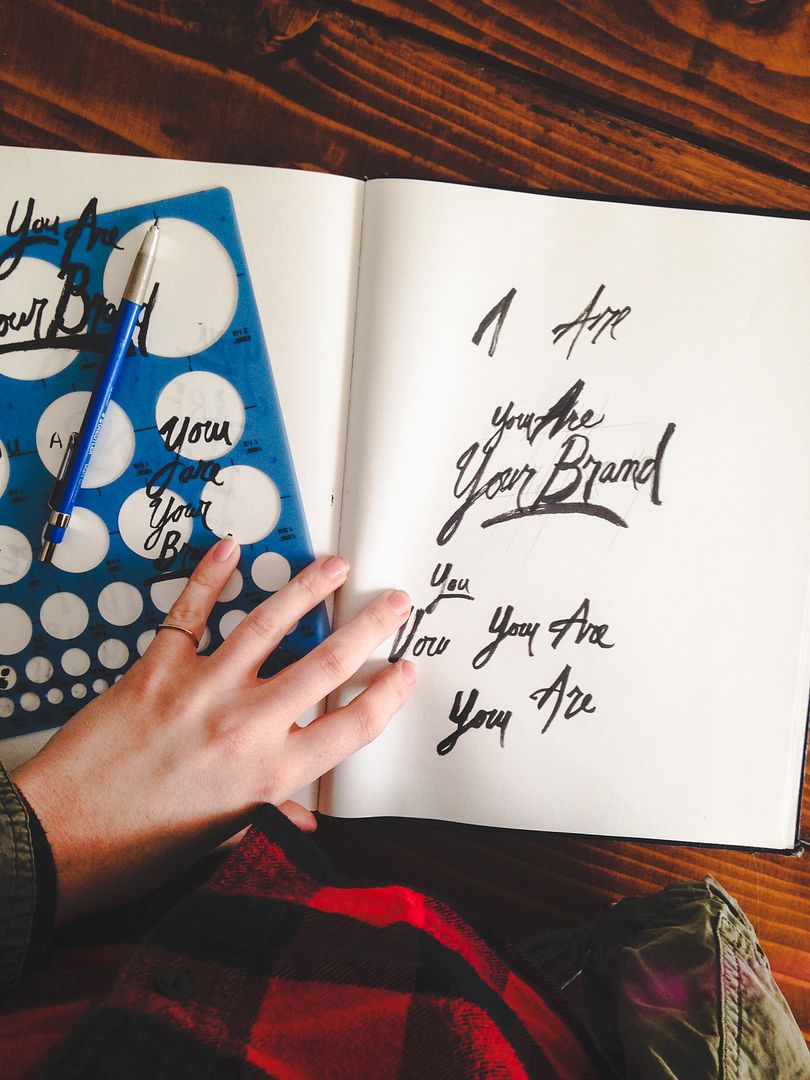 You Are
our Brand
You
are
Your
Are
You Are
Your Brand
You
You Are
You Are